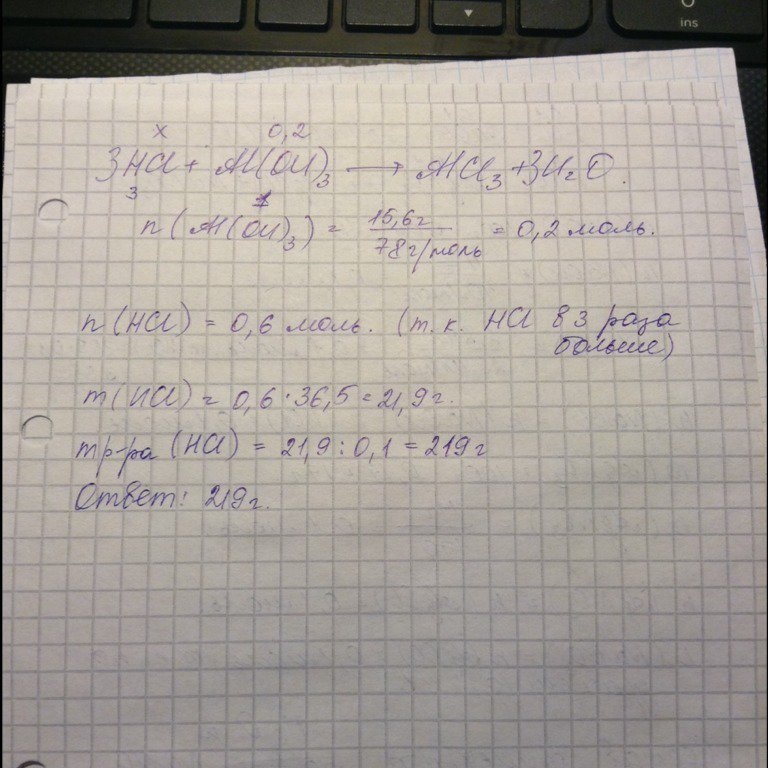 ins
x 0,2
3HCl + Al(OH)₃ ⟶ AlCl₃ + 3H₂O.
3 1
n(Al(OH)₃) = 15,6г / 78г/моль = 0,2 моль.
n(HCl) = 0,6 моль. (т.к. HCl в 3 раза
больше)
m(HCl) = 0,6·36,5 = 21,9г.
mр-ра (HCl) = 21,9 : 0,1 = 219г
Ответ: 219г.